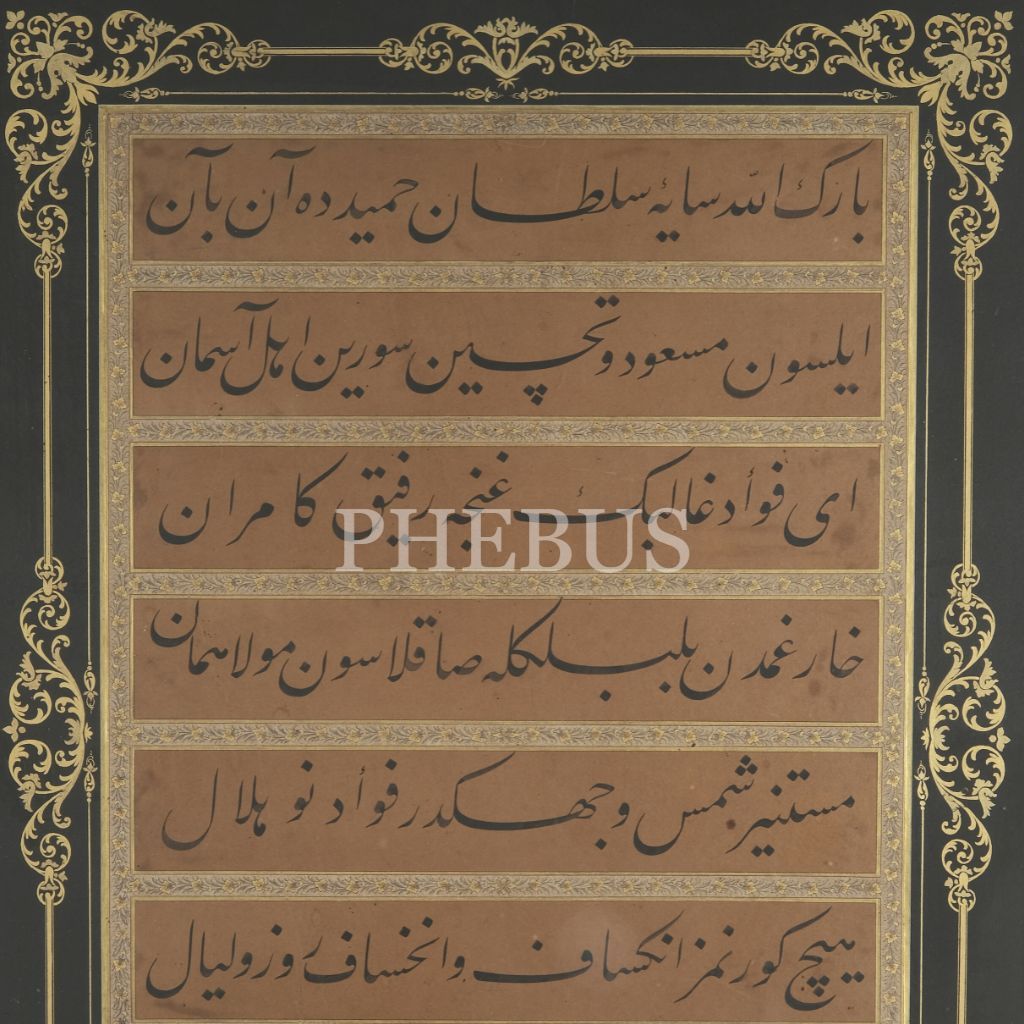 بارك الله سایۀ سلطان حمیدده آن بآن
ایلسون مسعود و تخچین سورین اهل آسمان
ای فوأد غالبك غنجه رفیق کامران
PHEBUS
خار غمدن بلبلكله صاقلاسون مولا همان
مستنیر شمس وجهكدر فوأد نو هلال
هیچ كورنمز انكساف و انخساف روز و لیال